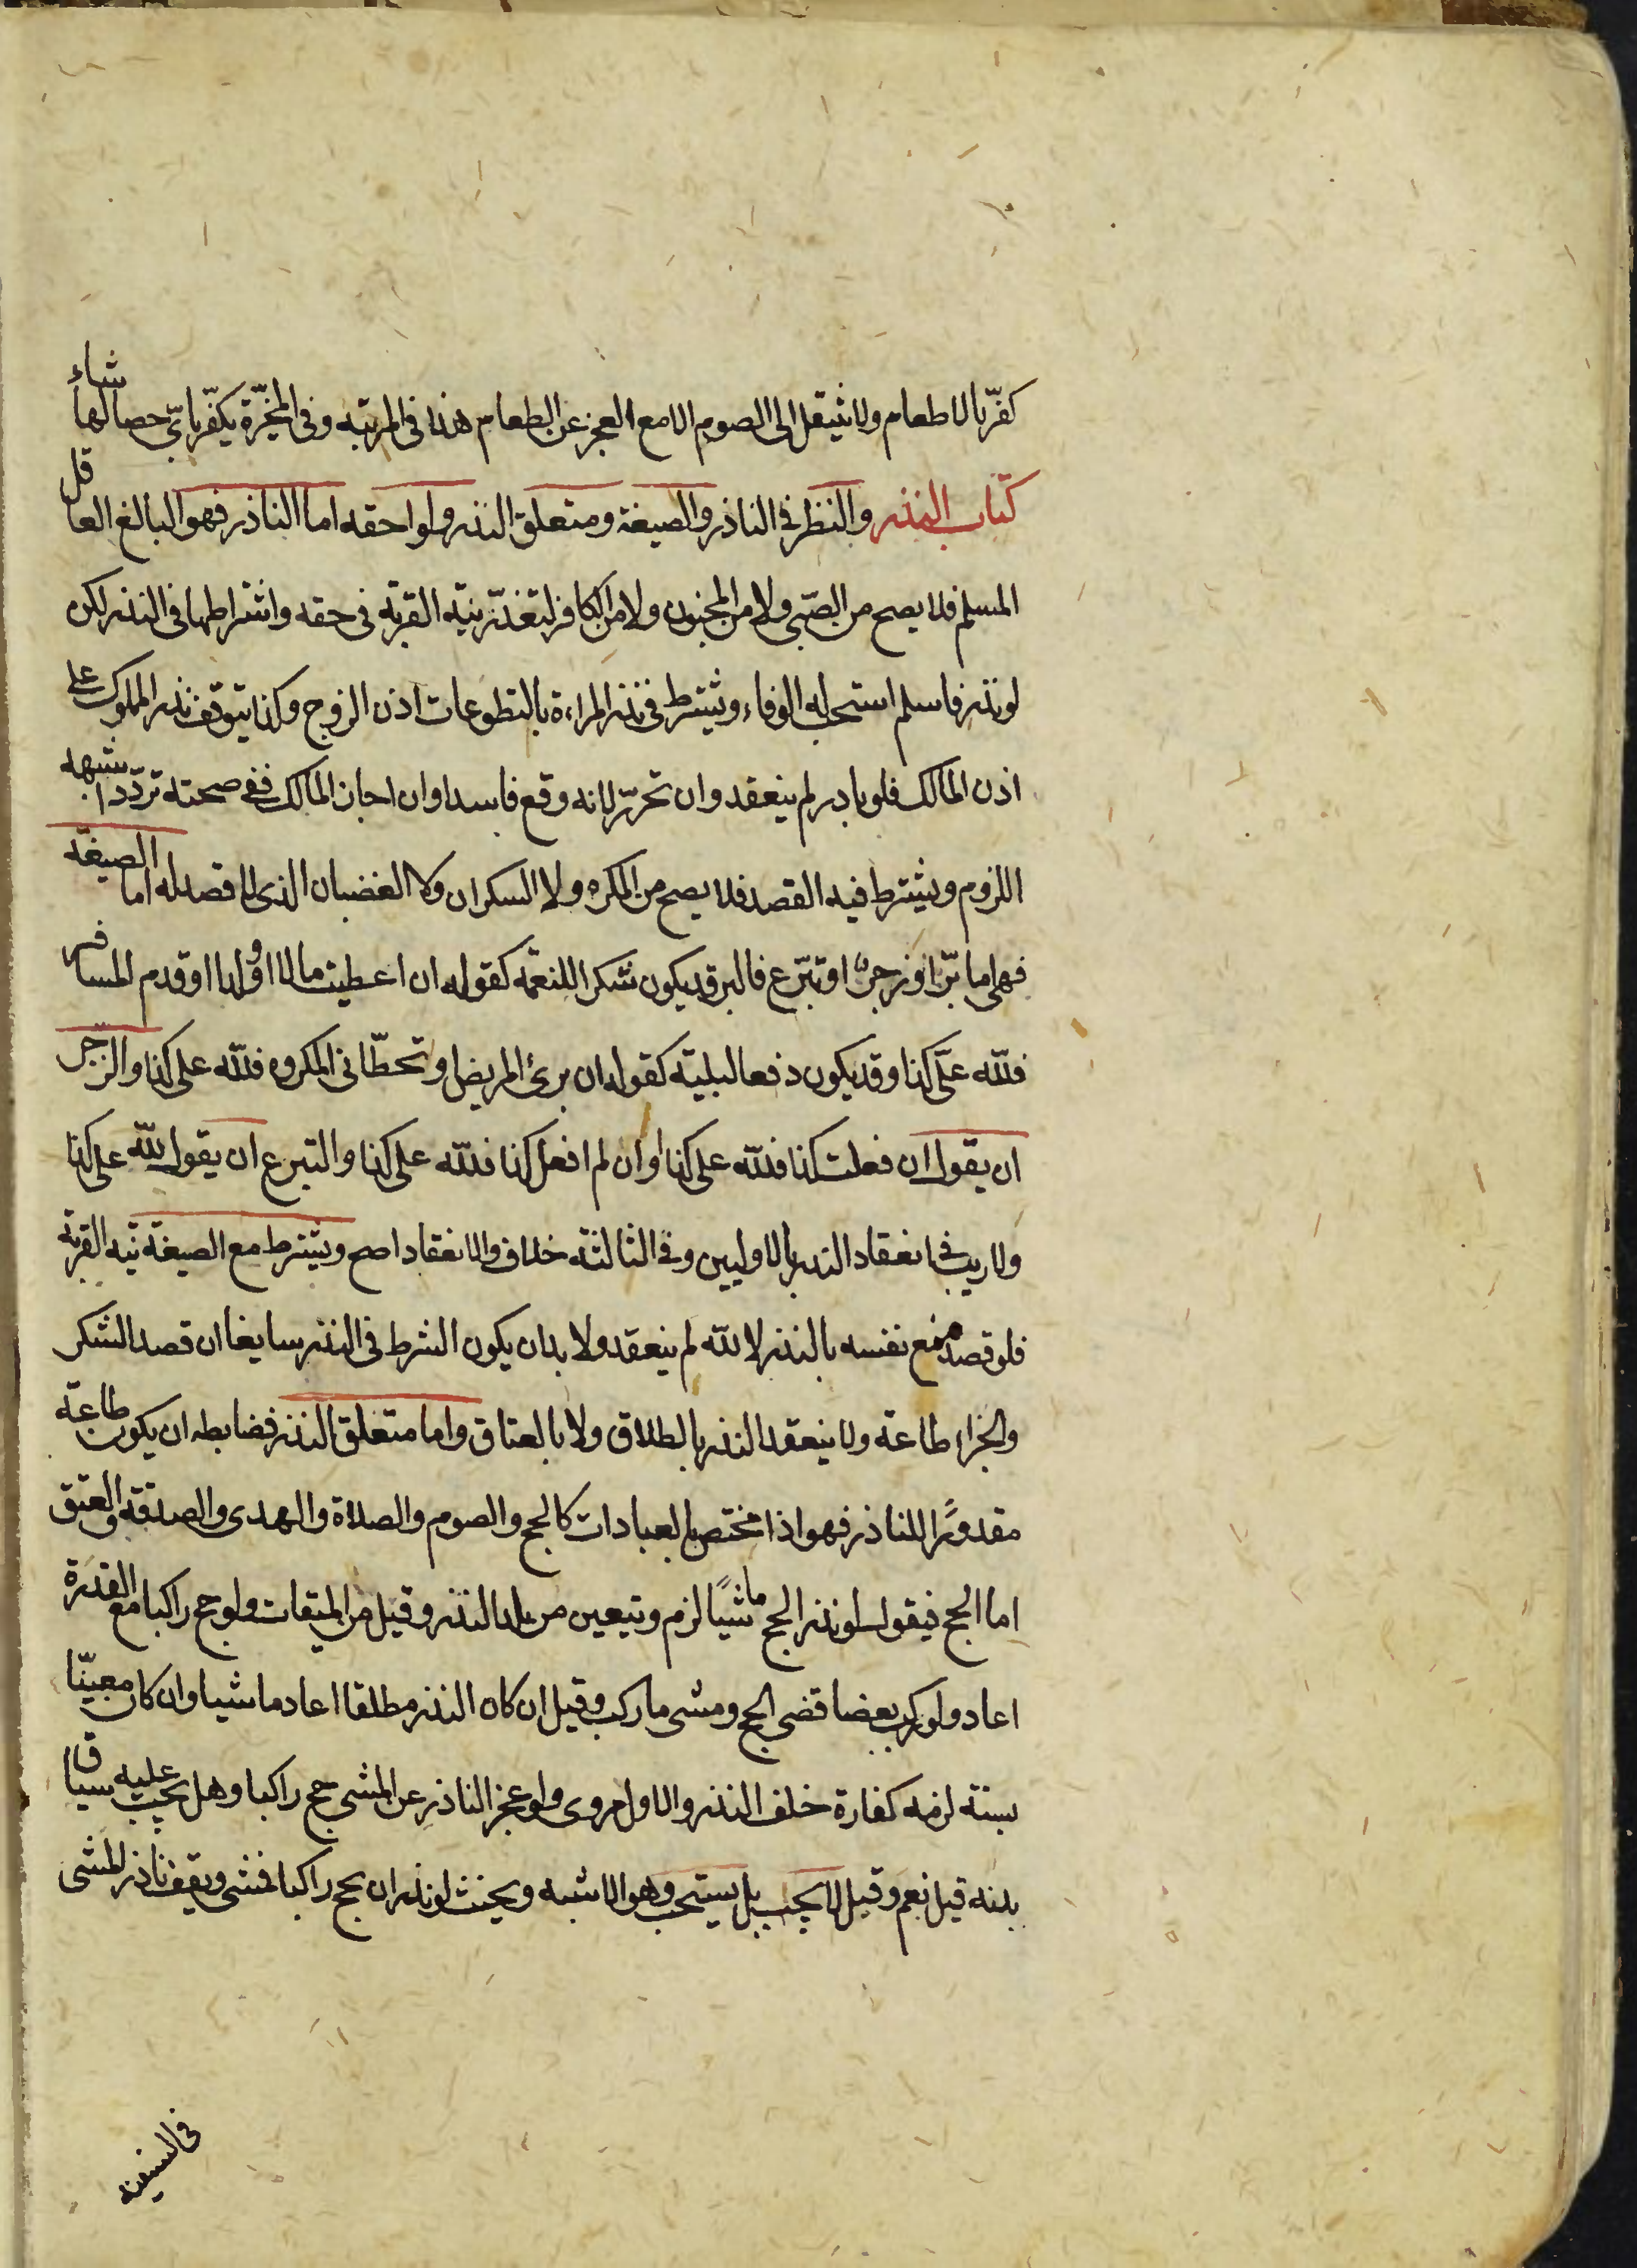 كفّر بالاطعام ولا ينتقل الى الصوم الا مع العجز عن الطعام هذا في المرتبه وفى المخيّرة يكفّر باىّ خصالها شاء
كتاب النذر والنظر في الناذر والصيغة ومتعلق النذر ولواحقه اما الناذر فهو البالغ العاقل
المسلم فلا يصح من الصّبى ولا من المجنون ولا من الكافر لتعذّر نيّه القربه فى حقه واشتراطها فى النذر لكن
لو نذر فاسلم استحب له الوفاء ويشترط فى نذر المراءة بالتطوعات اذن الزوج وكذا يتوقف نذر المملوك على
اذن المالك فلو بادر لم ينعقد وان تحرّر لانه وقع فاسدا وان اجاز المالك ففي صحته تردّد اشبهه
اللزوم ويشترط فيه القصد فلا يصح من المكره ولا السكران ولا الغضبان الذى لا قصد له اما الصيغة
فهى اما برّ او زجر او تبرّع فالبر قد يكون شكرا للنعمة كقوله ان اعطيت مالا او ولدا او قدم المسافر
فلله علىّ كذا وقد يكون دفعا لبليّة كقوله ان برئ المريض او تخطّانى المكروه فلله على كذا والزّجر
ان يقول ان فعلت كذا فلله على كذا او ان لم افعل كذا فلله على كذا والتبرع ان يقول لله على كذا
ولا ريب في انعقاد النذر بالاوليين وفي الثالثة خلاف والانعقاد اصح ويشترط مع الصيغة نيه القربة
فلو قصد منع نفسه بالنذر لا لله لم ينعقد ولا بد ان يكون الشرط فى النذر سايغا ان قصد الشكر
والجزاء طاعة ولا ينعقد النذر بالطلاق ولا بالعتاق واما متعلق النذر فضابطه ان يكون طاعة
مقدورًا للناذر فهو اذا مختص بالعبادات كالحج والصوم والصلاة والهدى والصدقة والعتق
اما الحج فيقول لو نذر الحج ماشيًا لزم ويتعين من بلد النذر وقيل من الميقات ولو حج راكبا مع القدرة
اعاد ولو ركب بعضا قضى الحج ومشى ما ركب وقيل ان كان النذر مطلقا اعاد ماشيا وان كان معينّا
بسنة لزمه كفارة خلف النذر والاول مروى ولو عجز الناذر عن المشى حج راكبا وهل يجب عليه سياق
بدنه قيل نعم وقيل لا يجب بل يستحب وهو الاشبه ويحنث لو نذر ان يحج راكبا فمشى ويقف ناذر المشى
فى السفينه